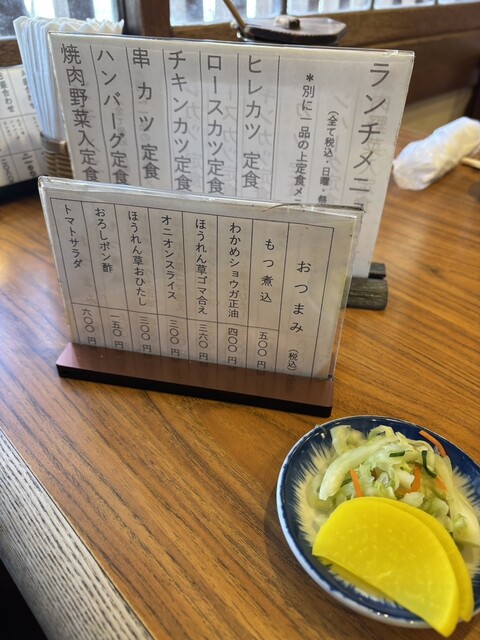 ランチメニ
（全て税込・日曜・祭
＊別に一品の上定食メニ
ヒレカツ 定食
ロースカツ定食
チキンカツ定食
串カツ 定食
ハンバーグ定食
焼肉野菜入定食
おつまみ （税込）
もつ煮込 五〇〇円
わかめショウガ正油 四〇〇円
ほうれん草ゴマ合え 三六〇円
オニオンスライス 三〇〇円
ほうれん草おひたし 三〇〇円
おろしポン酢 一五〇円
トマトサラダ 六〇〇円